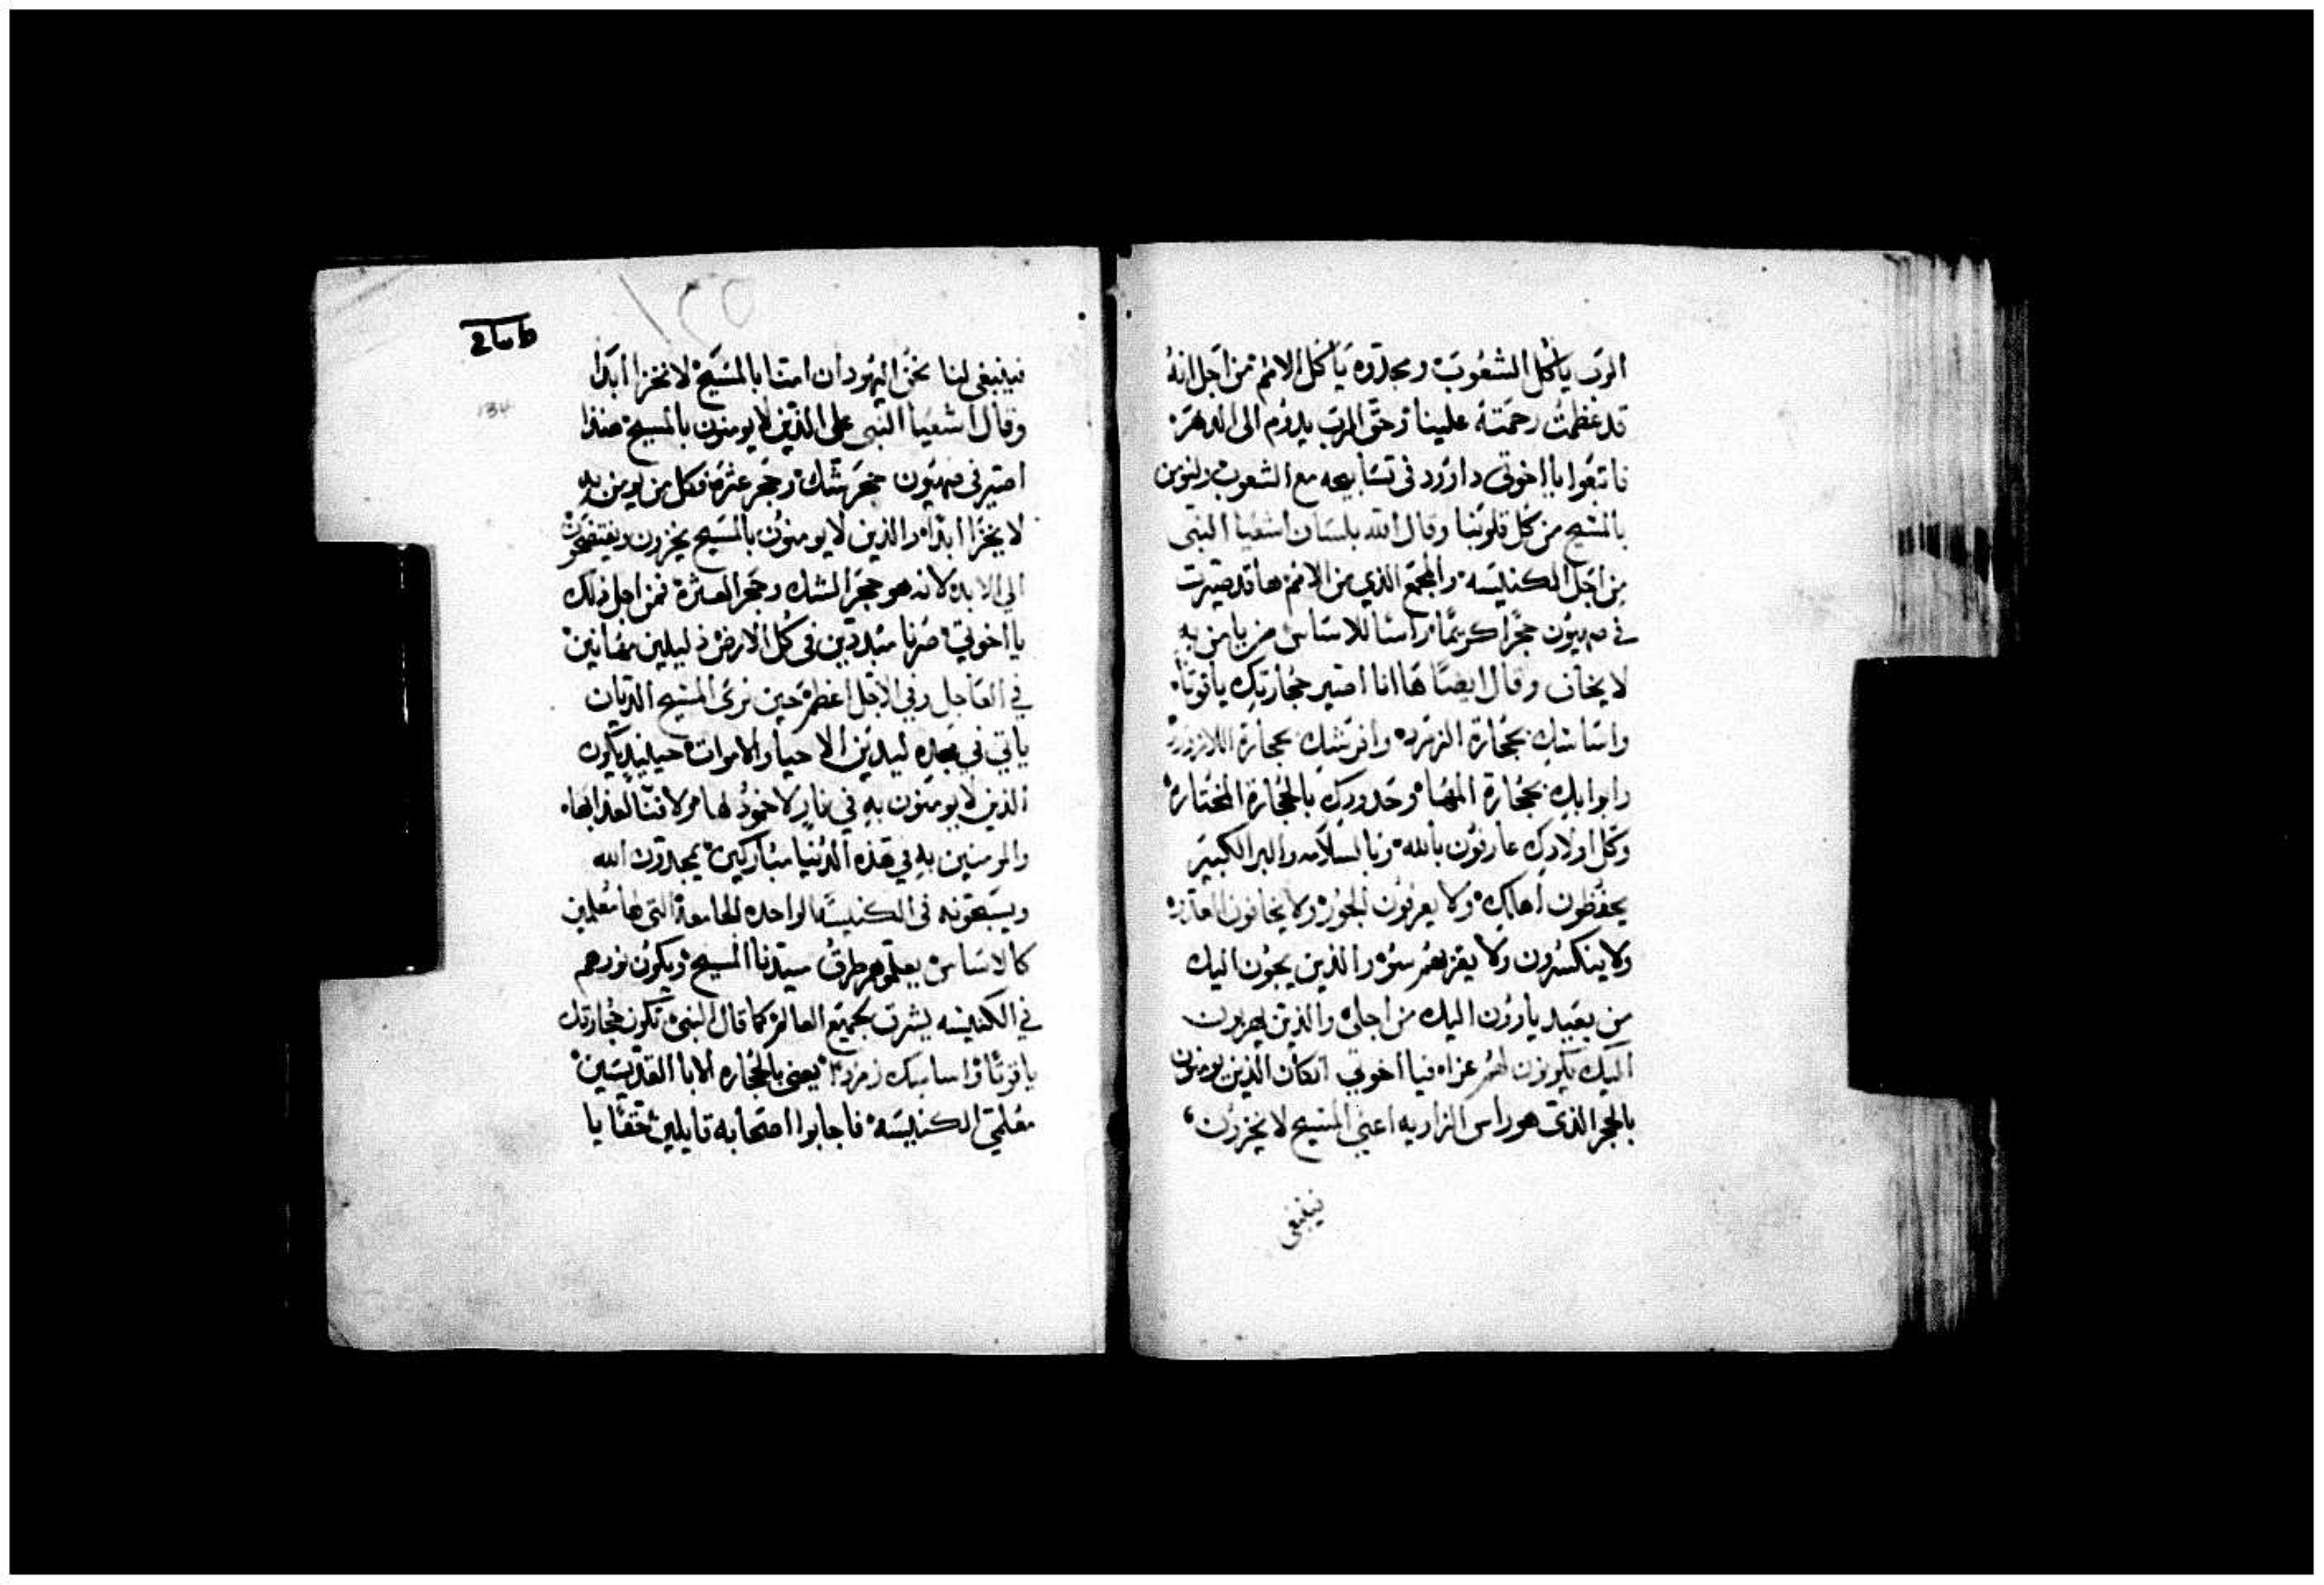 الرب ياكل الشعوب ومجدوه ياكل الامم من اجل انهُ
قد عظمت رحمتهُ علينا وحق الرب يدوم الى الدهر
فاتبعوا يااخوتى داوود فى تسابيحه مع الشعوب ولنومن
بالمسيح من كل قلوبنا وقال الله بلسان اشعيا النبى
من اجل الكنيسه والمجمع الذي من الامم ها قد صيرت
في صهيون حجرًا كريمًا راسًا للاساس من يامن به
لا يخاف وقال ايضًا هاانا اصير حجارتك ياقوتًا
واساسك بحجارة الزمرد وافرشك بحجارة اللازورد
وابوابك بحجارة المها وحدودك بالحجارة المختارة
وكل اولادك عارفون بالله وبالسلامه والبر الكبير
يحفظون اهلك ولا يعرفون الجور ولا يخافون
ولا ينكسرون ولا يفزعهم سوء والذين يجون اليك
من بعيد ياوون اليك من اجلى والذين يهربون
اليك يكونون لهم عزاء فيا اخوتي انكان الذين يومنون
بالحجر الذى هو راس الزاويه اعنى المسيح لا يخزون
فينبغى
125
134
فينبغى لنا نحن اليهود ان امنا بالمسيح لا نخزا ابدًا
وقال اشعيا النبى على الذين لا يومنون بالمسيح هنذا
اصير فى صهيون حجر شك وحجر عثرة فكل من يومن به
لا يخزا ابدًا والذين لا يومنون بالمسيح يخزون ويفتضحون
الى الابد لانه هو حجر الشك وحجر العثرة فمن اجل ذلك
يااخوتي صرنا مبددين فى كل الارض ذليلين مهانين
في العاجل وفي الاجل اعظم حين نرى المسيح الديان
ياتي في مجده ليدين الاحيا والاموات حينيذ يكون
الذين لا يومنون به في نار لا خمود لها ولا فنا لعذابها
والمومنين به في هذه الدنيا مباركين يمجدون الله
ويسبحونه فى الكنيسة الواحده الجامعة التى ها معلمين
كالاساس يعلموهم طرق سيدنا المسيح ويكون نورهم
في الكنيسه يشرق بجميع العالم كما قال النبى تكون حجارتك
ياقوتًا واساسك زمرد يعنى بالحجاره الابا القديسين
معلمي الكنيسة فاجابوا اصحابه قايلين حقًا يا